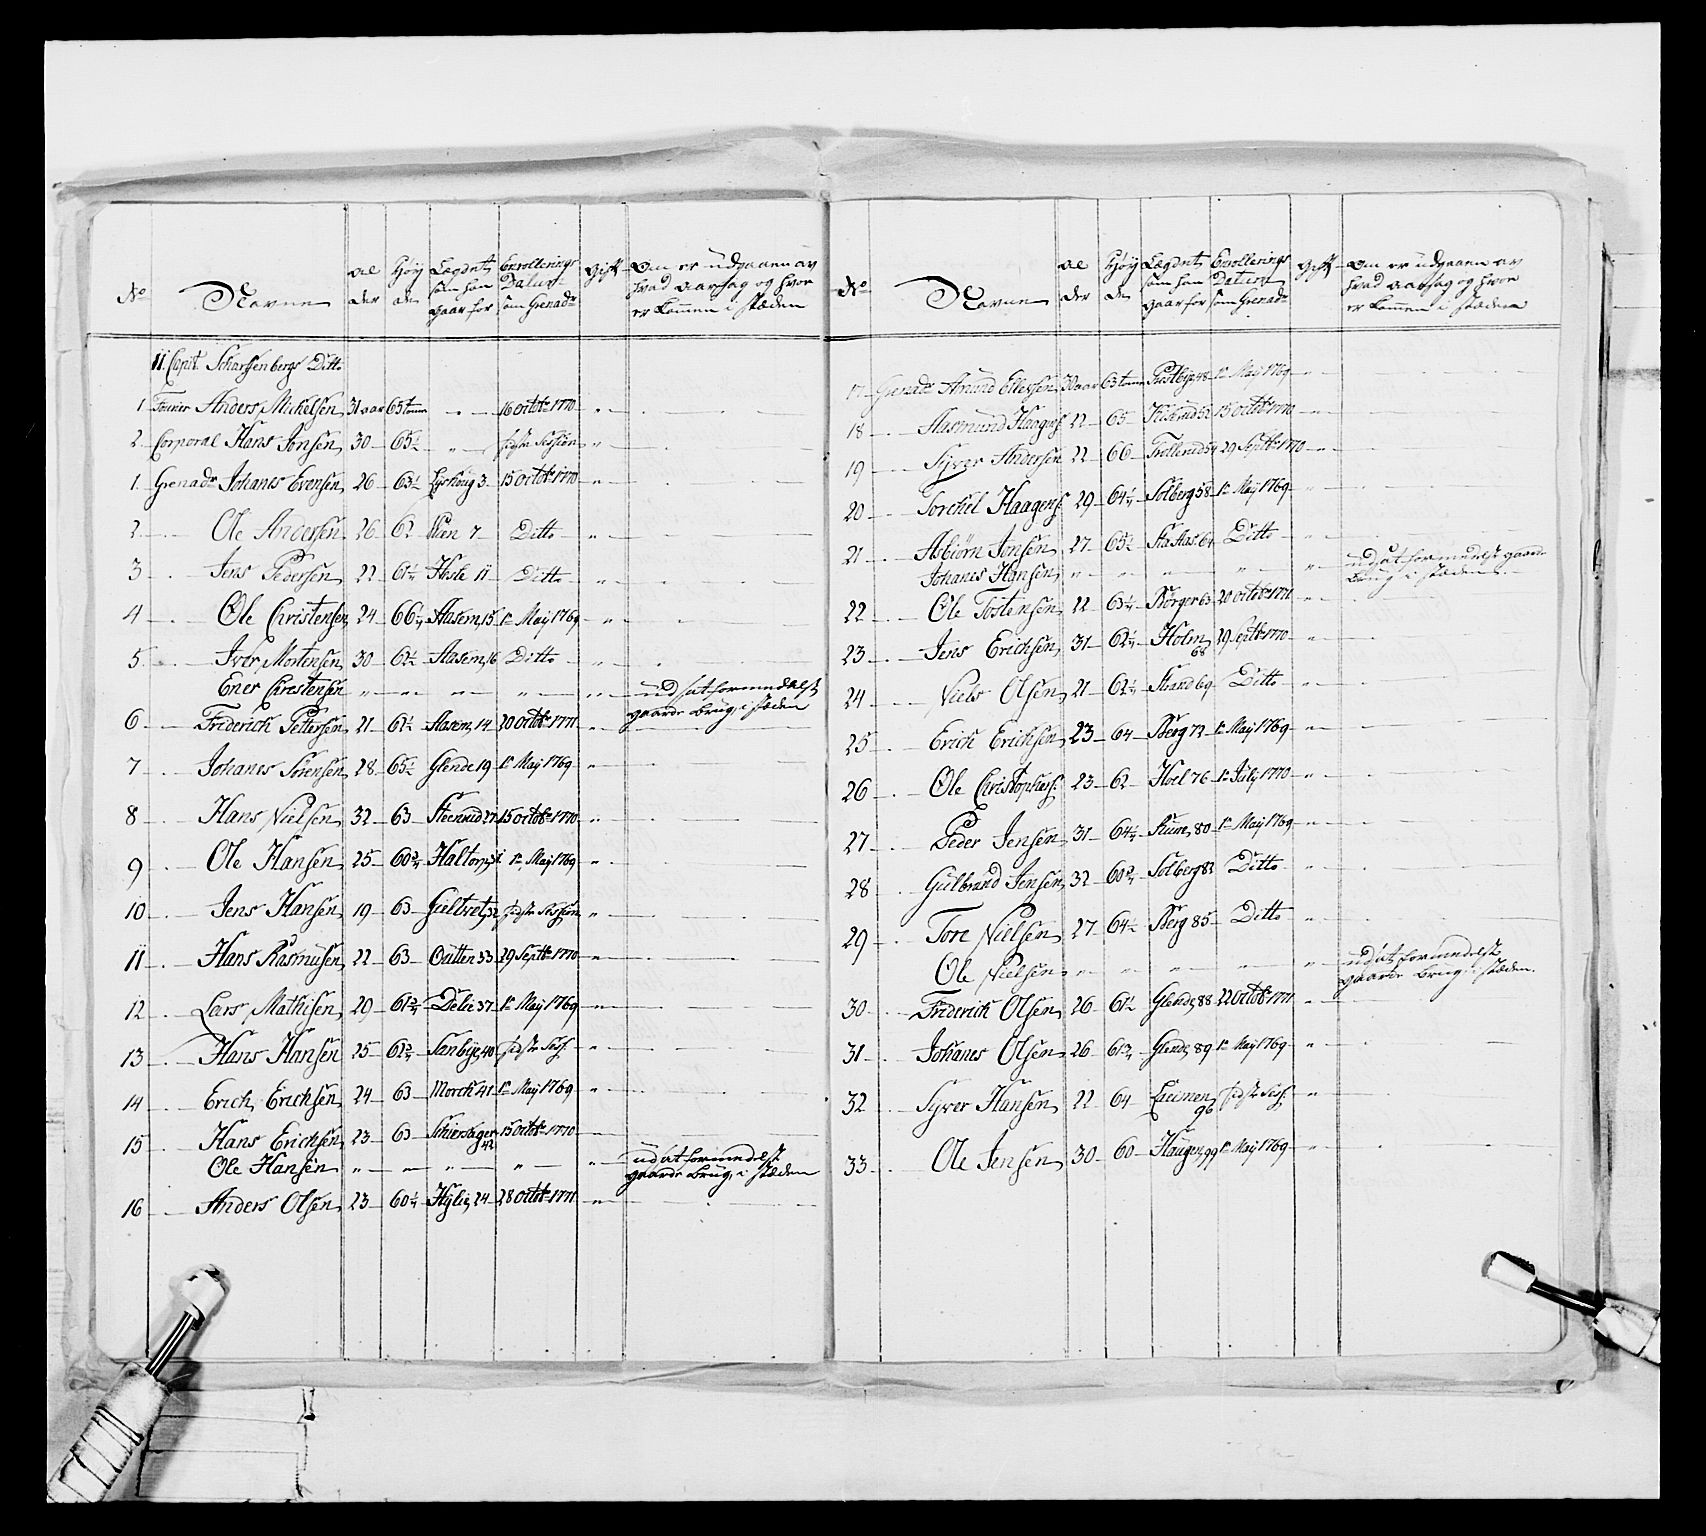 No Navne Alder Høyden Lægdet som han gaar for Enrollerings Datum som Grenadr Gift Om er udgaaen av hvad aarsag og hvor er kommen i stæden
11. Capit. Scharffenbergs Ditto
1 Fourier Anders Michelsen 31 aar 65 tomr " 16 Octobr 1770 "
2 Corporal Hans Jonsen 30 65½ " sidste Session "
1. Grenadr Johanes Evensen 26 63½ 3 15 Octobr 1770 "
2 Ole Andersen 26 62 7 Ditto "
3 Jens Pedersen 22 61½ Hosle 11 Ditto "
4 Ole Christensen 24 66¼ Aasem 15 1te Maij 1769 "
5 Iver Mortensen 30 62½ Aasem 16 Ditto "
Ener Christensen " " " " " udsat formedelst gaards brug i stæden
6 Frederich Pettersen 21 62½ Aasem 14 20 Octobr 1771 "
7 Johanes Sørensen 28 65½ Glende 19 1te Maij 1769 "
8 Hans Nielsen 32 63 Steenrud 27 15 Octobr 1770 "
9 Ole Hansen 25 60¾ Haltorp 31 1te Maij 1769 "
10 Jens Hansen 19 63 Gieltvet 32 sidste Session "
11 Hans Rasmusen 22 63 33 29 Septbr 1770 "
12 Lars Mathisen 29 61¾ Delie 37 1te Maij 1769 "
13 Hans Hansen 25 62¾ Sanbye 40 sidste Sess. "
14 Erich Erichsen 24 63 Morck 41 1te Maij 1769 "
15 Hans Erichsen 23 63 42 15 Octobr 1770
Ole Hansen " " " " " udsat formedelst gaards brug i stæden
16 Anders Olsen 23 60¼ Hylie 24 28 Octobr 1771 "
No Navne Alder Høyden Lægdet som han gaar for Enrollerings Datum som Grenadr Gift Om er udgaaen av hvad aarsag og hvor er kommen i stæden
17 Grenadr Amund Ellefsen 30 aar 63 tomr Prestbye 48 1te Maij 1769 "
18 Aasmund Haagens. 22 65 52 15 Octobr 1770 "
19 Syver Andersen 22 66 Trollerud 54 29 Septbr 1770 "
20 Torchel Haagens. 29 64¼ Solberg 58 1te Maij 1769 "
21 Asbiørn Jonsen 27 65½ 61 Ditto "
Johanes Hansen " " " " " udsat formedelst gaards brug i stæden
22 Ole Tostensen 22 63¼ Børger 63 20 Octobr 1771 "
23 Jens Erichsen 31 62¼ Holm 68 29 Septbr 1770 "
24 Niels Olsen 21 62¼ Strand 69 Ditto "
25 Erich Erichsen 23 64 Berg 72 1te Maij 1769 "
26 Ole Christophers. 23 62 Hoel 76 1te Julij 1770 "
27 Peder Jensen 31 64¼ 80 1te Maij 1769 "
28 Gulbrand Jensen 32 60¾ Solberg 82 Ditto "
29 Tore Nielsen 27 64½ Berg 85 Ditto "
Ole Nielsen " " " " " udsat formedelst gaards brug i stæden.
30 Frederich Olsen 26 61½ Glende 88 22 Octobr 1771 "
31 Johanes Olsen 26 61¾ Glende 89 1te Maij 1769 "
32 Syver Hansen 22 64 96 sidste Sess. "
33 Ole Jensen 30 60 Haugen 99 1te Maij 1769 "